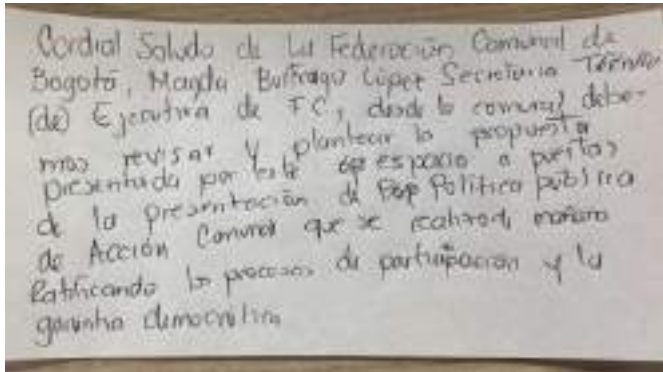 Cordial Saludo de la Federación Comunal de
Bogotá, Magda Buitrago López Secretaria Técnica
(de) Ejecutiva de FC, desde lo comunal debe-
mos revisar y plantear la propuesta
presentada por este espacio a puertas
de la presentación de Política pública
de Acción Comunal que se realizará mañana
Ratificando los procesos de participación y la
garantía democrática